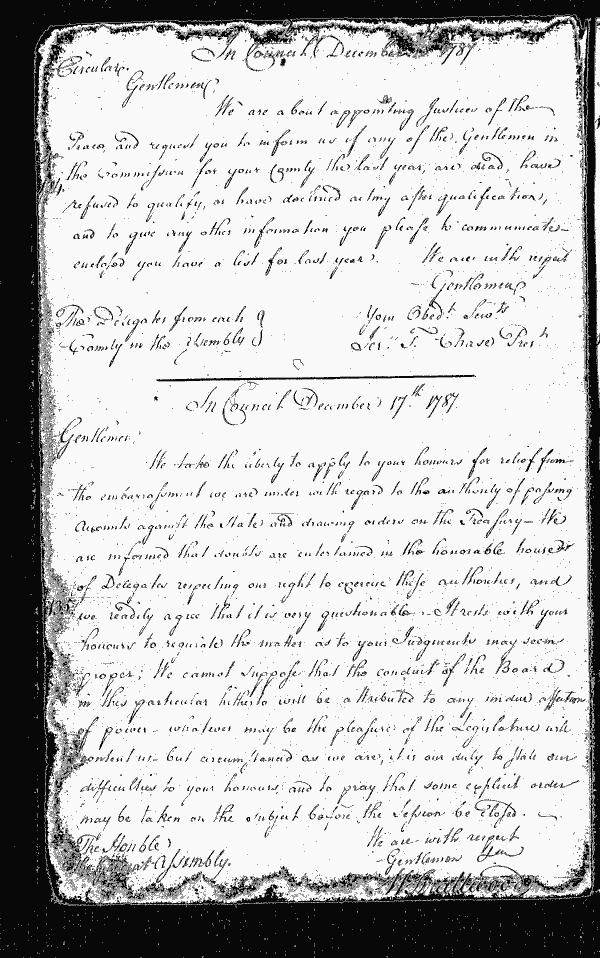 In Council December 1787
Circular.
Gentlemen,
We are about appointing Justices of the
Peace, and request you to inform us if any of the Gentlemen in
the Commission for your County the last year, are dead, have
refused to qualify, or have declined acting after qualification,
and to give any other information you please to communicate
enclosed you have a list for last year. We are with respect
Gentlemen
The Delegates from each } Your Obedt. Servts
County in the Assembly } Jer. T. Chase Prest
In Council December 17th 1787.
Gentlemen,
We take the liberty to apply to your honours for relief from
the embarrassment we are under with regard to the authority of passing
Accounts against the State and drawing orders on the Treasury - We
are informed that doubts are entertained in the honorable house
of Delegates respecting our right to exercise these authorities, and
we readily agree that it is very questionable - It rests with your
honours to regulate the matter as to your Judgments may seem
proper; We cannot suppose that the conduct of the Board
in this particular hitherto will be attributed to any undue affectation
of power - whatever may be the pleasure of the Legislature will
content us - but circumstanced as we are, it is our duty to state our
difficulties to your honours and to pray that some explicit order
may be taken on the subject before the Session be closed.
The Honble We are with respect
Assembly. Gentlemen